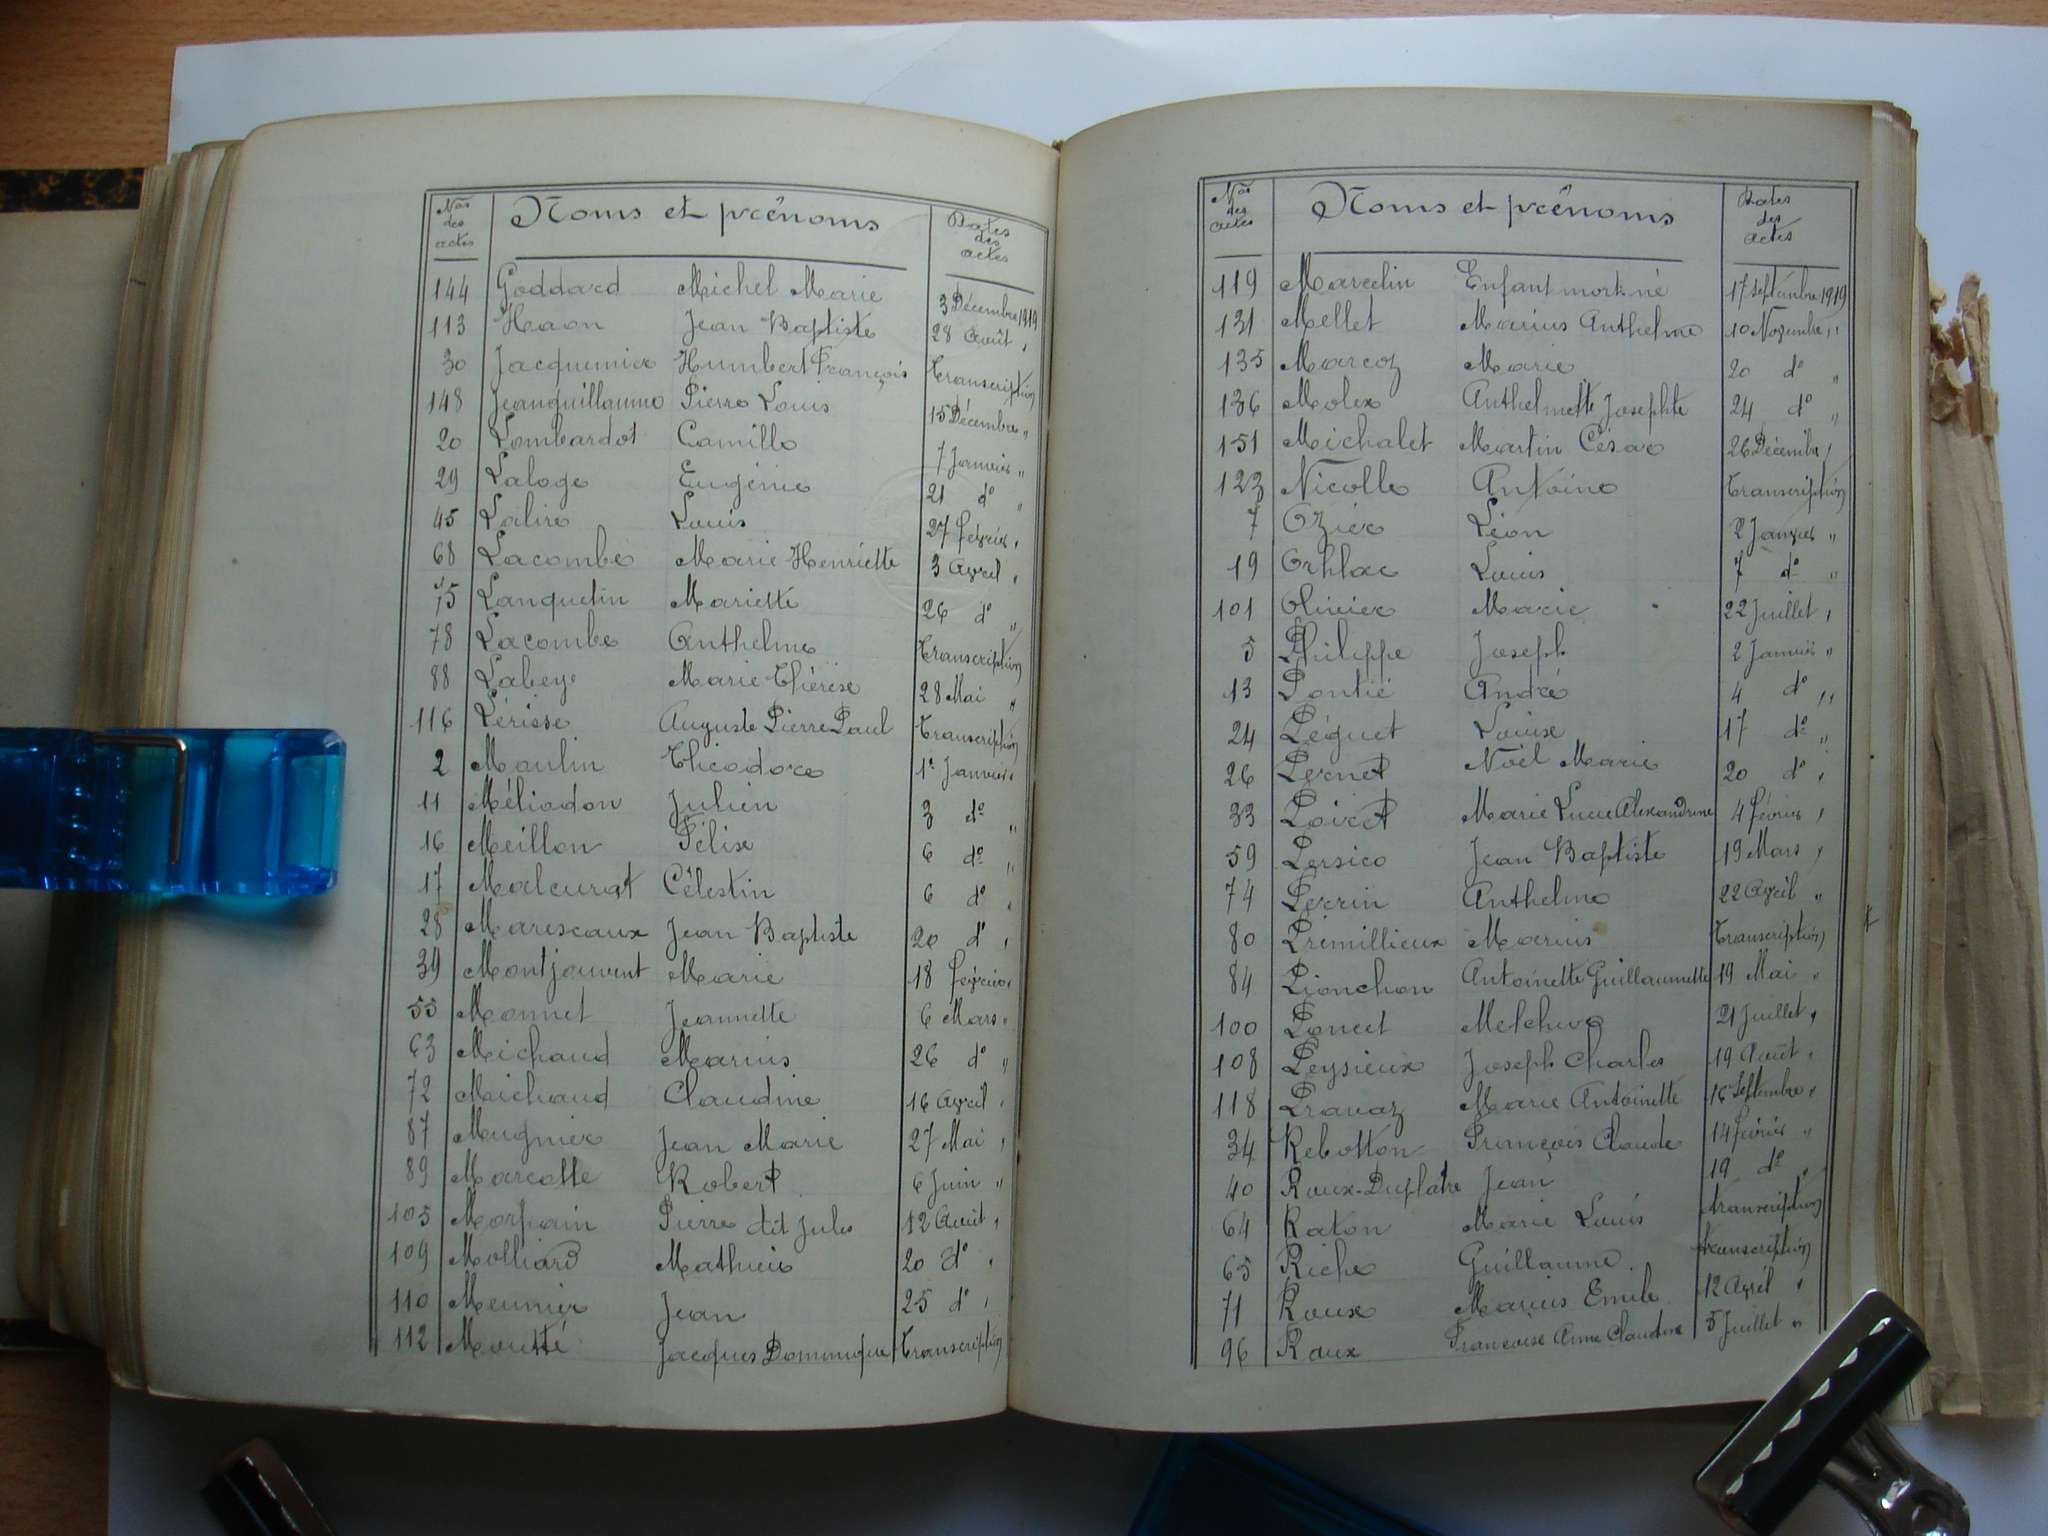 Nos des actes Noms et prénoms Dates des actes
144 Goddard Michel Marie 3 Décembre 1919
113 Haon Jean Baptiste 28 Août "
30 Jacquemier Humbert François Transcription
148 Jeanguillaume Pierre Louis 15 Décembre "
20 Lombardot Camille 7 Janvier "
29 Laloge Eugénie 21 do "
45 Lalire Louis 27 février "
68 Lacombe Marie Henriette 3 Avril "
75 Lanquetin Mariette 26 do "
78 Lacombe Anthelme Transcription
88 Labeye Marie Thérèse 28 Mai "
116 Lérisse Auguste Pierre Paul Transcription
2 Moulin Théodore 1er Janvier "
11 Méliodon Julien 3 do "
16 Meillon Félix 6 do "
17 Malcurat Célestin 6 do "
28 Marescaux Jean Baptiste 20 do "
39 Montjouvent Marie 18 février "
55 Monnet Jeannette 6 Mars "
63 Michaud Marius 26 do "
72 Michaud Claudine 16 Avril "
87 Mugnier Jean Marie 27 Mai "
89 Marcotte Robert 6 Juin "
105 Morpain Pierre dit Jules 12 Août "
109 Molliard Mathieu 20 do "
110 Meunier Jean 25 do "
112 Moutté Jacques Dominique Transcription
Nos des actes Noms et prénoms Dates des actes
119 Marcelin Enfant mort-né 17 Septembre 1919
131 Mellet Marius Anthelme 10 Novembre "
135 Marcoz Marie 20 do "
136 Molex Anthelmette Josephte 24 do "
151 Michalet Martin César 26 Décembre "
123 Nicolle Antoine Transcription
7 Ozier Léon 2 Janvier "
19 Orhlac Louis 7 do "
101 Olivier Marie 22 Juillet "
5 Philippe Joseph 2 Janvier "
13 Pontié André 4 do "
24 Péguet Louise 17 do "
26 Pernet Noël Marie 20 do "
33 Poiret Marie Lucie Alexandrine 4 février "
59 Persico Jean Baptiste 19 Mars "
74 Perrin Anthelme 22 Avril "
80 Prémillieux Marius Transcription
84 Pionchon Antoinette Guillaumette 19 Mai "
100 Poncet Melchior 21 Juillet "
108 Peysieux Joseph Charles 19 Août "
118 Pravaz Marie Antoinette 16 Septembre "
34 Rebotton François Claude 14 février "
40 Roux-Duplatre Jean 19 do "
64 Raton Marie Louis transcription
65 Riche Guillaume transcription
71 Roux Marius Emile 12 Avril "
96 Roux Françoise Anne Claudine 5 Juillet "